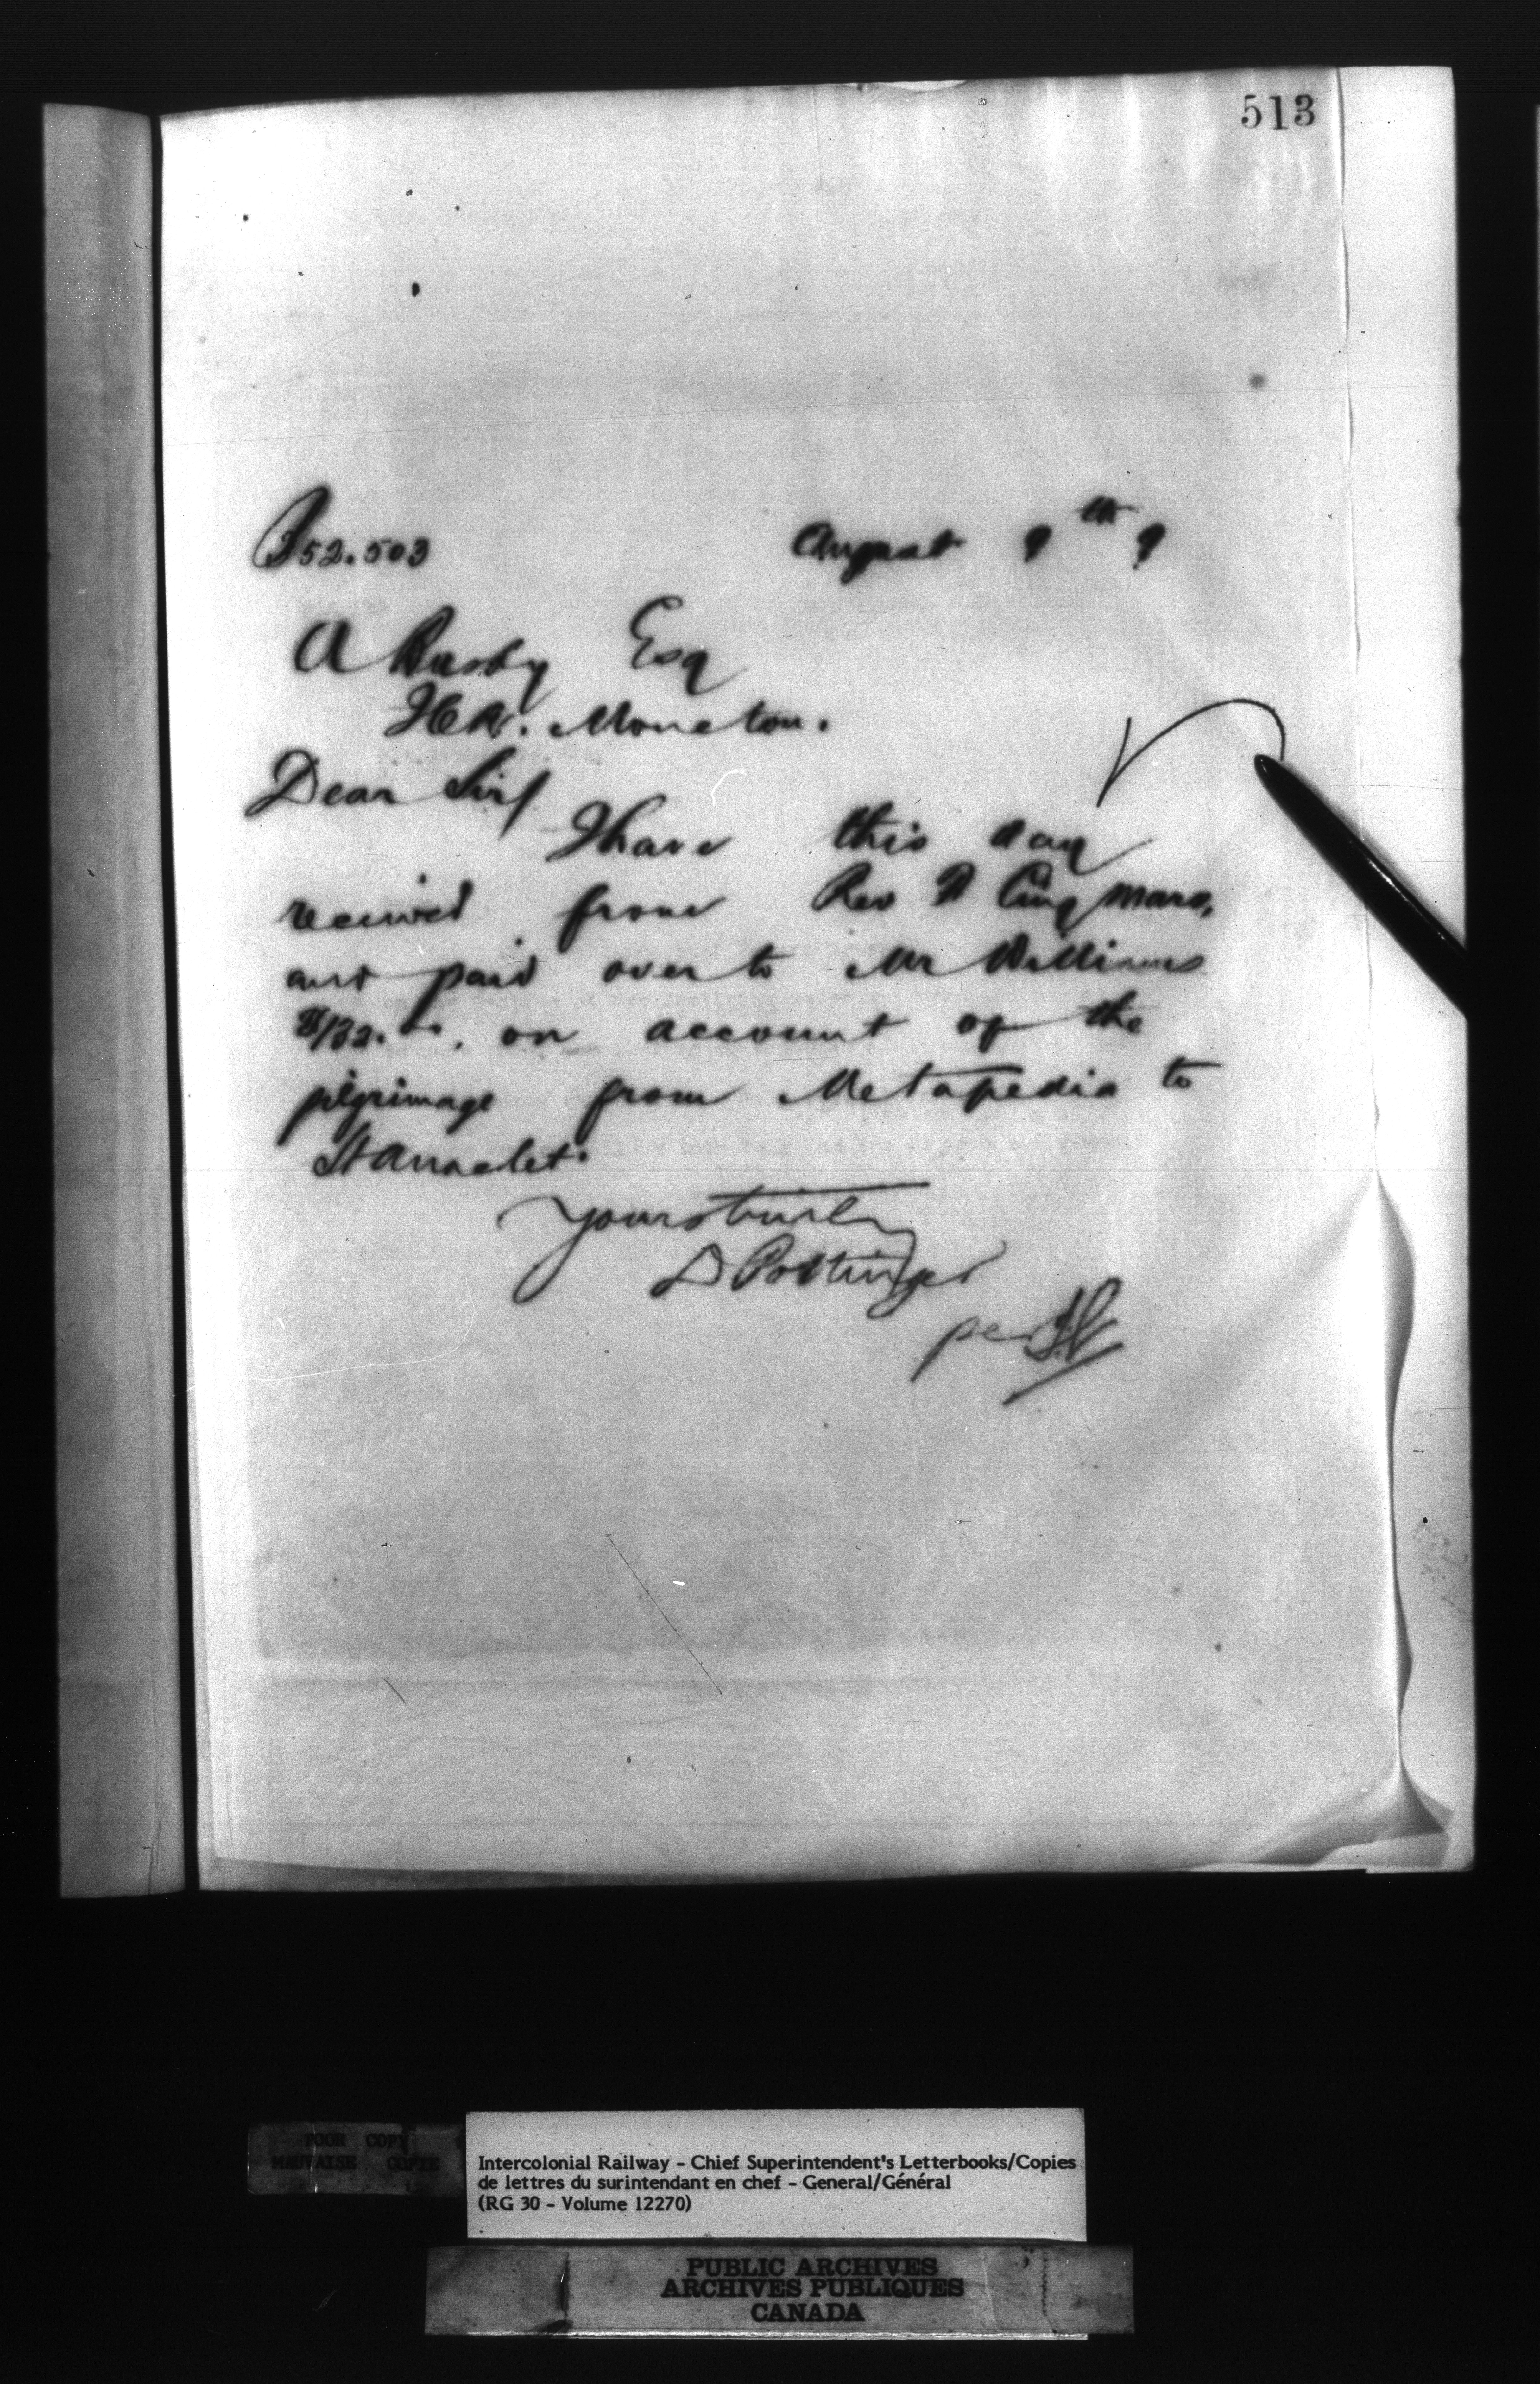 513
B52.503 August 9th 9
A Busby Esq
ICR. Moncton.
Dear Sir/
I have this day
received from Rev A Cinqmars,
and paid over to Mr Williams
$132.00, on account of the
pilgrimage from Metapedia to
St Anaclet.
Yours truly
D Pottinger
per
POOR COPY
MAUVAISE COPIE
Intercolonial Railway - Chief Superintendent's Letterbooks/Copies
de lettres du surintendant en chef - General/Général
(RG 30 - Volume 12270)
PUBLIC ARCHIVES
ARCHIVES PUBLIQUES
CANADA